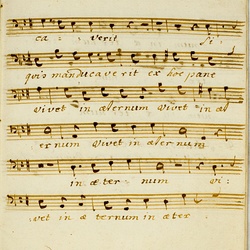 ca - verit Si
quis manducaverit ex hoc pane
vivet in æternum vivet in æt
ernum vivet in æternum
in æ ter - num vi-
vet in æ ternum in æter